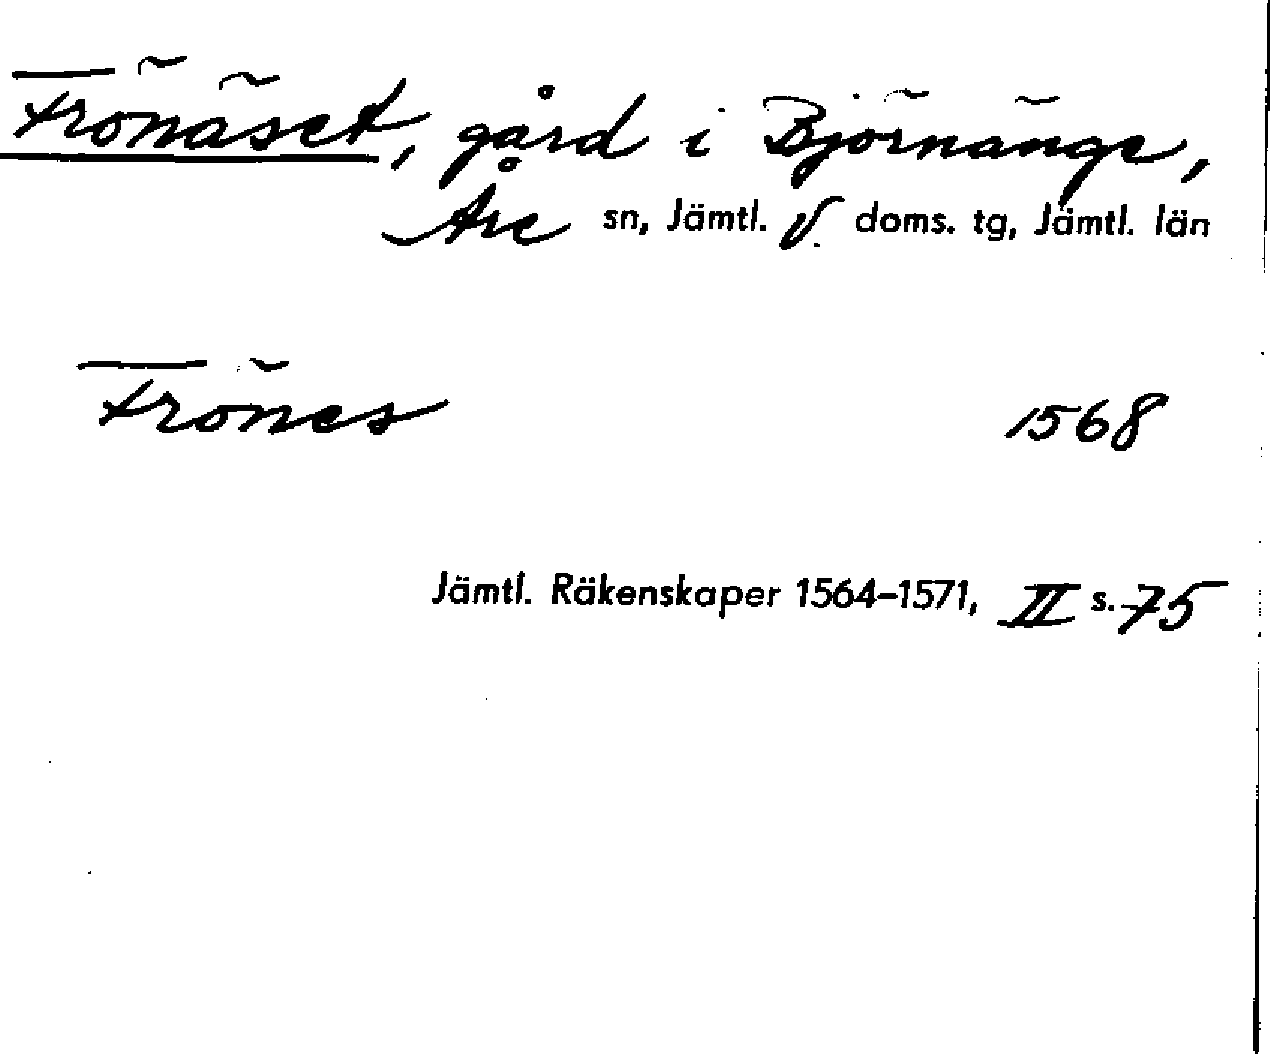 Frönäset, gård i Björnänge,
Åre sn, Jämtl. V. doms. tg, Jämtl. län
Frönes 1568
Jämtl. Räkenskaper 1564-1571, II s. 75